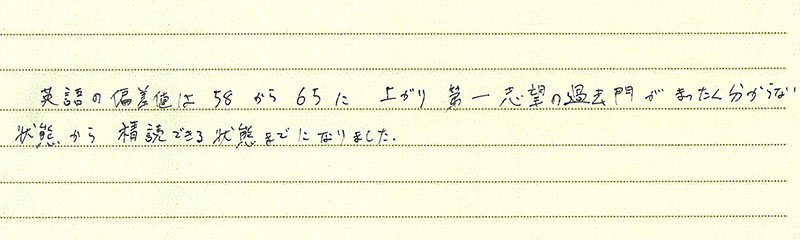 英語の偏差値は58から65に上がり第一志望の過去門がまったく分からない
状態から積読できる状態までになりました.